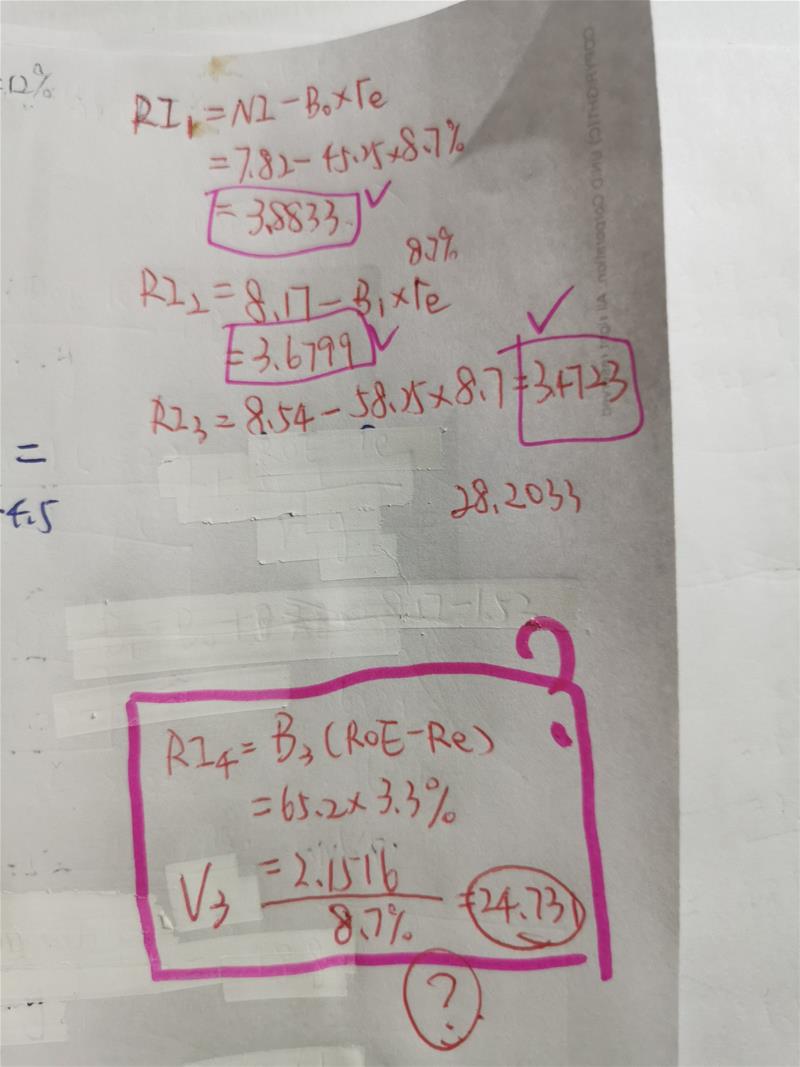 =12%
RI₁ = NI - B₀ × re
= 7.82 - 45.25 × 8.7%
= 3.8833
8.7%
RI₂ = 8.17 - B₁ × re
= 3.6799
RI₃ = 8.54 - 58.25 × 8.7 = 3.4723
=
4.5
28.2033
?
RI₄ = B₃ (ROE - Re)
= 65.2 × 3.3%
V₃ = 2.1516 / 8.7% = 24.731
?